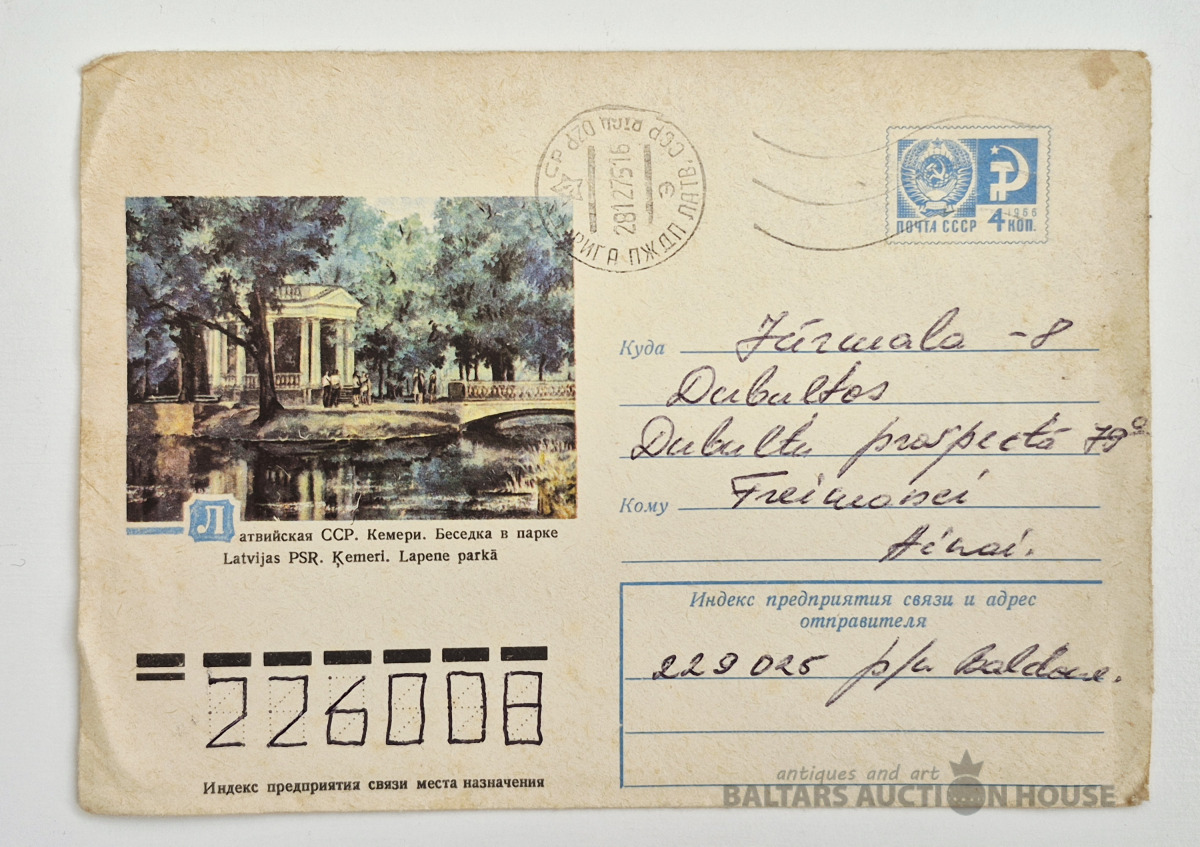 РИГА ПЖДП ЛАТВ. ССР
28127516
э
1966
ПОЧТА СССР 4 КОП.
Куда Jūrmala - 8
Dubultos
Dubultu prospektā 79a
Кому Freimanei
Ainai.
Латвийская ССР. Кемери. Беседка в парке
Latvijas PSR. Ķemeri. Lapene parkā
Индекс предприятия связи и адрес
отправителя
229025 p/n Baldone.
226008
Индекс предприятия связи места назначения
antiques and art
BALTARS AUCTION HOUSE